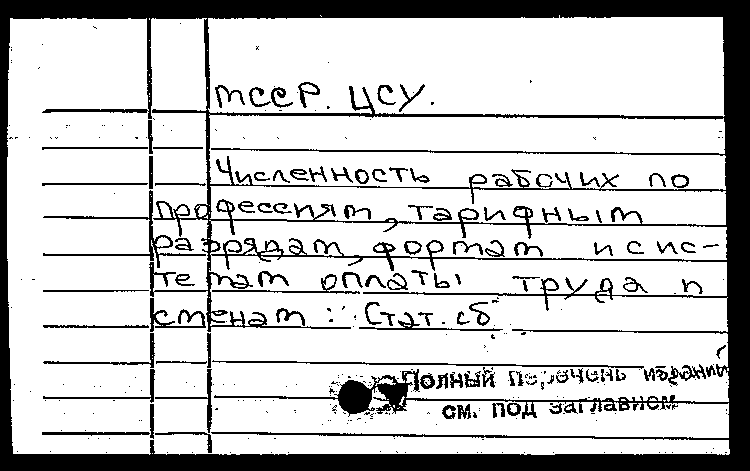 ТССР. ЦСУ.
Численность рабочих по
профессиям, тарифным
разрядам, формам и сис-
темам оплаты труда и
сменам : Стат. сб
Полный перечень изданий
см. под заглавием